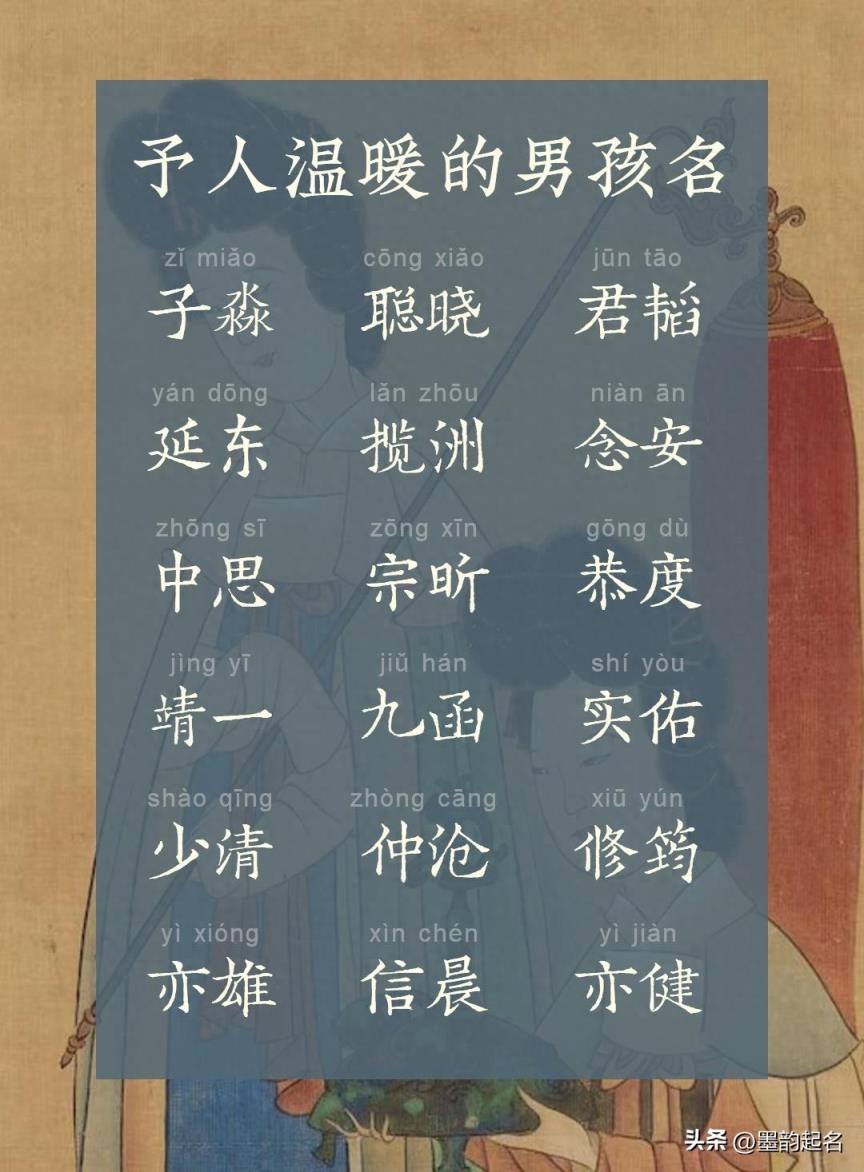 予人温暖的男孩名
zǐ miǎo cōng xiǎo jūn tāo
子淼 聪晓 君韬
yán dōng lǎn zhōu niàn ān
延东 揽洲 念安
zhōng sī zōng xīn gōng dù
中思 宗昕 恭度
jìng yī jiǔ hán shí yòu
靖一 九函 实佑
shào qīng zhòng cāng xiū yún
少清 仲沧 修筠
yì xióng xìn chén yì jiàn
亦雄 信晨 亦健
头条 @墨韵起名